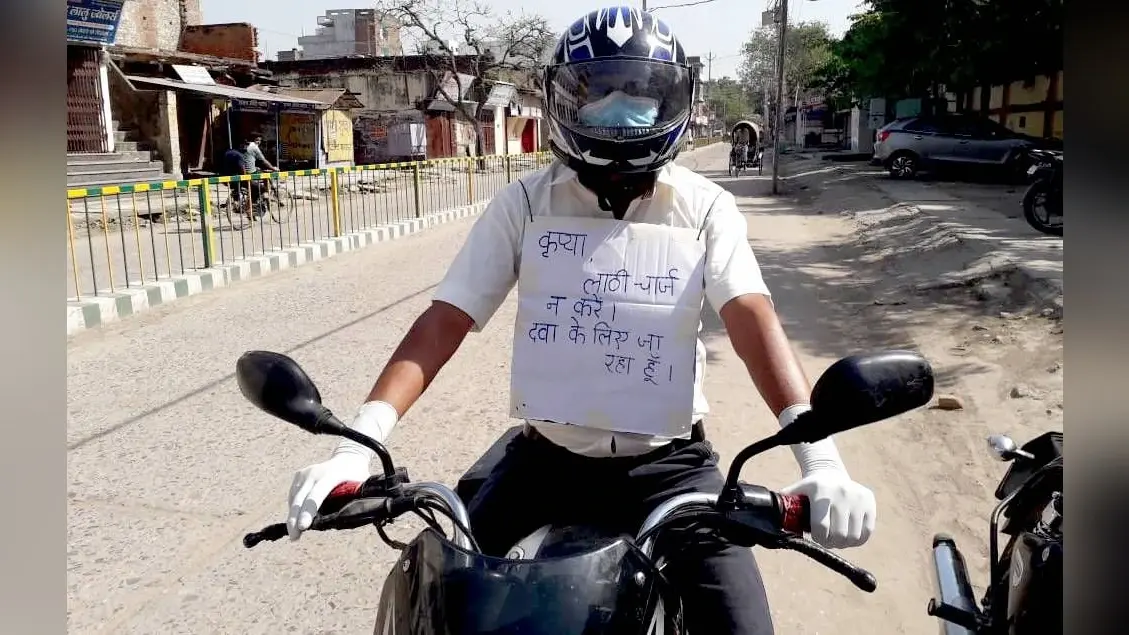 कृप्या,
लाठी-चार्ज
न करें।
दवा के लिए जा
रहा हूँ।